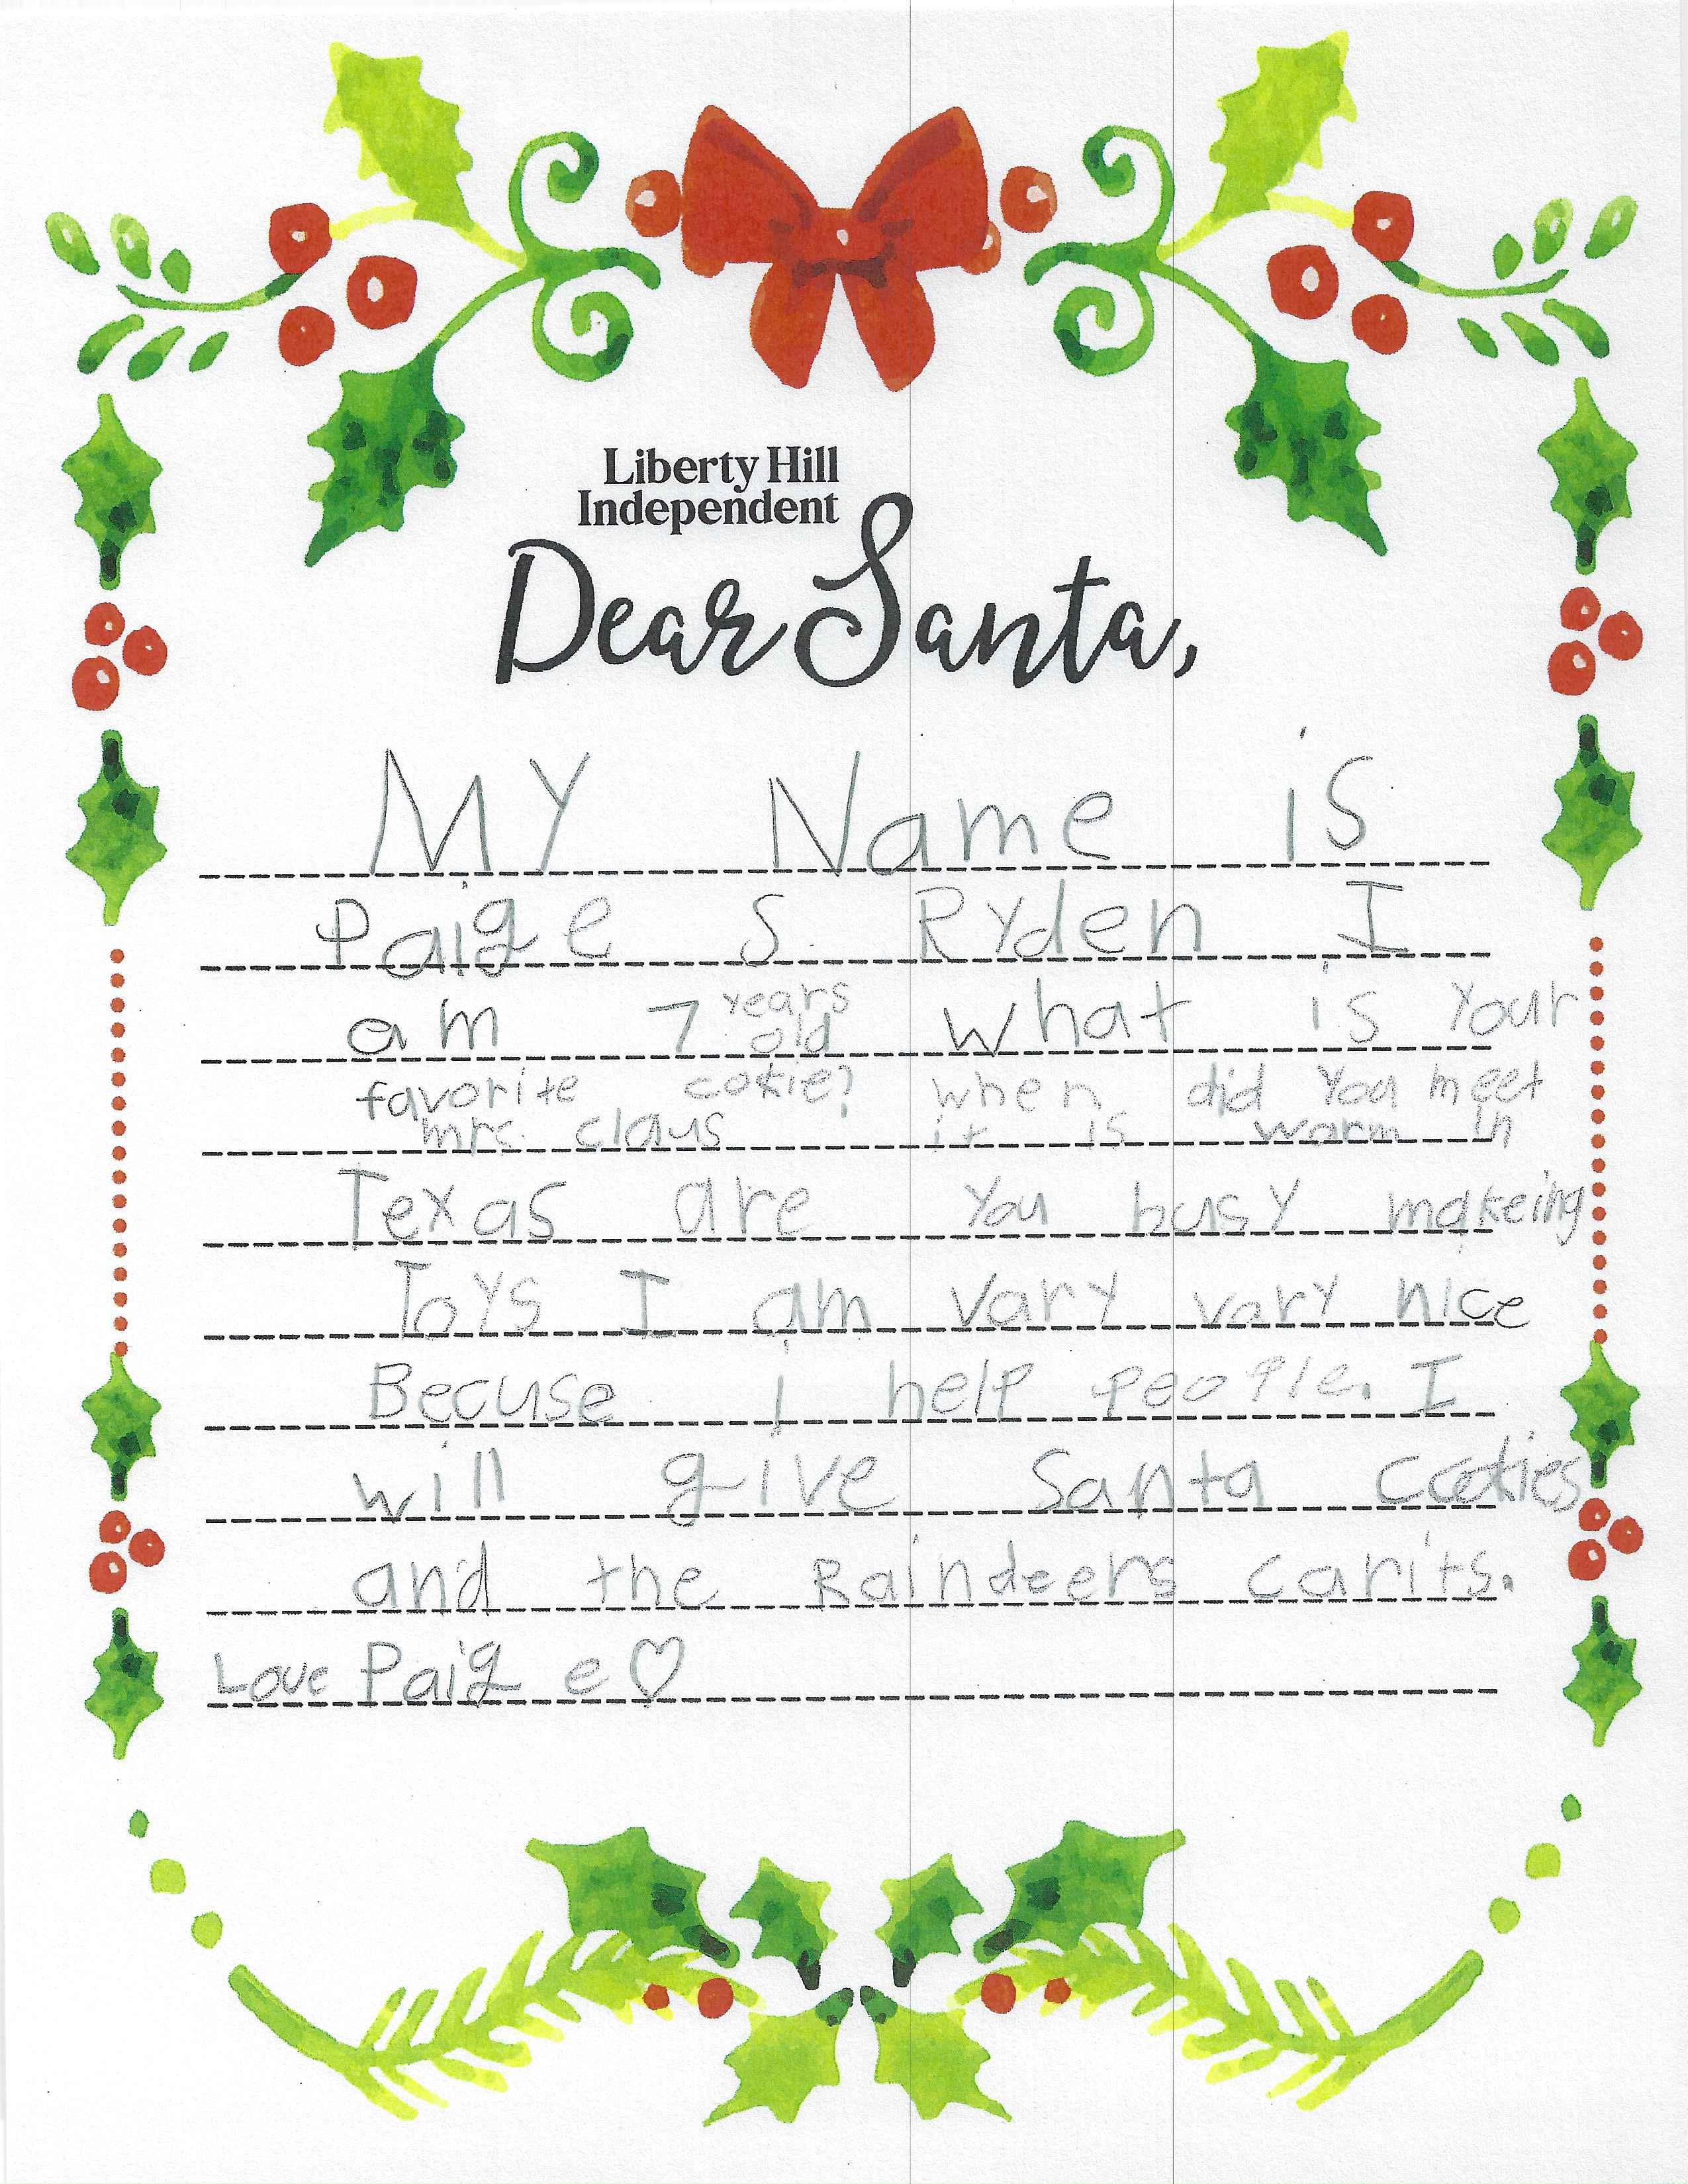 Liberty Hill
Independent
Dear Santa,
MY Name is
Paige S. Ryden I
am 7 years old what is your
favorite cokie? when did you meet
mrs. claus it is warm in
Texas are you busy makeing
Toys I am vary vary nice
Becuse i help people. I
will give Santa cookies
and the Raindeers carits.
Love Paige ♡